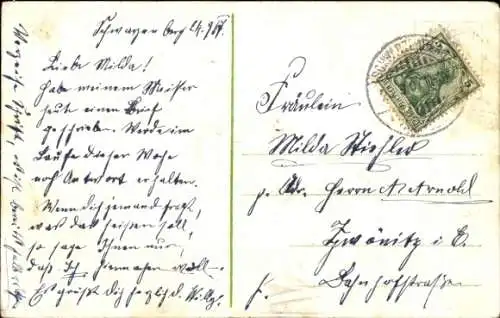 Schwarzenberg 24.9.
Liebe Milda!
Habe meinem Meister
heute einen Brief
geschrieben. Werde im
Laufe dieser Woche
noch Antwort erhalten.
Wenn dich jemand fragt,
was das heisen soll,
so sage Ihnen nur,
daß Ich
Es grüßt dich herzlich d. Willy.
Fräulein
Milda Stiehler
p. Adr. Herrn A. Arnold
Zwönitz i. E.
Bahnhofstraße